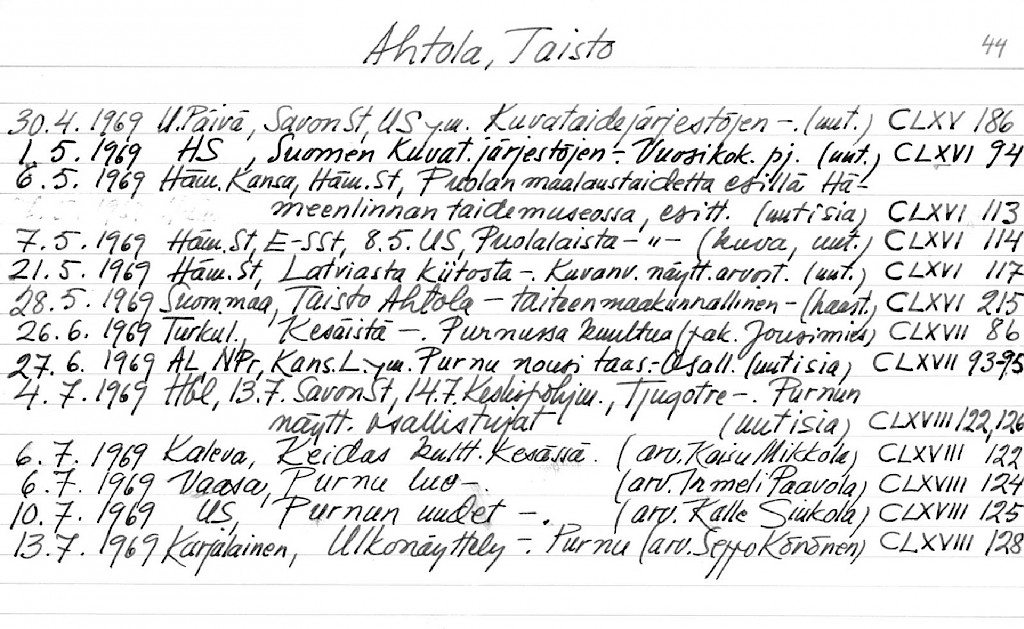 Ahtola, Taisto 44
30.4.1969 U.Päivä, SavonSt, US y.m. Kuvataidejärjestöjen -. (uut.) CLXV 186
1.5.1969 HS, Suomen Kuvat.järjestöjen -. Vuosikok. pj. (uut.) CLXVI 94
6.5.1969 Häm.Kansa, Häm.St, Puolan maalaustaidetta esillä Hä-
meenlinnan taidemuseossa, esitt. (uutisia) CLXVI 113
7.5.1969 Häm.St, E-SSt, 8.5. US, Puolalaista - " - (kuva, uut.) CLXVI 114
21.5.1969 Häm.St, Latviasta kiitosta -. Kuvanv. näytt. arvost. (uut.) CLXVI 117
28.5.1969 Suommaa, Taisto Ahtola - taiteen maakunnallinen - (haast.) CLXVI 215
26.6.1969 Turkul., Kesäistä -. Purnussa kuultua (pak. Jousimies) CLXVII 86
27.6.1969 AL, NPr, Kans.L. ym. Purnu nousi taas -. Osall. (uutisia) CLXVII 93-95
4.7.1969 Hbl, 13.7. SavonSt, 14.7. Keskipohjm., Tjugotre -. Purnun
näytt. osallistujat (uutisia) CLXVIII 122,126
6.7.1969 Kaleva, Keidas kultt.kesässä. (arv. Kaisu Mikkola) CLXVIII 122
6.7.1969 Vaasa, Purnu luo -. (arv. Irmeli Paavola) CLXVIII 124
10.7.1969 US, Purnun uudet -. (arv. Kalle Siukola) CLXVIII 125
13.7.1969 Karjalainen, Ulkonäyttely -. Purnu (arv. Seppo Könönen) CLXVIII 128